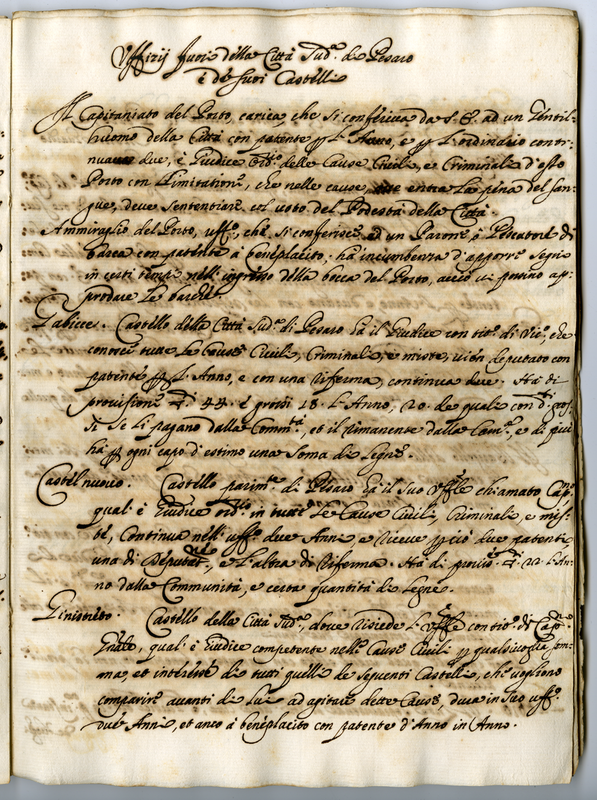 Uffizij fuori della Città sud.ª di Pesaro
e de suoi Castelli
Il Capitaniato del Porto, carica che si conferiva da S. E. ad un Gentil-
huomo della Città con patente p L'Anno, e p L'ordinario conti-
nuava due, è Giudice Ord.º delle Cause Civili, e Criminali d'esso
Porto con Limitation.e, che nelle cause, entra La pena del san-
gue, deve Sentenziare col voto del Podestà della Città.
Ammiraglio del Porto, uff.º, che si conferisce ad un Parone, ò Pescatore di
barca con patente à beneplacito; hà incumbenza d'apporre Segni
in certi tempi nell'ingresso della bocca del Porto, acciò vi possino ap-
prodare Le barche.
Gabicce. Castello della Città sud.ª di Pesaro hà il Giudice con tit.º di Vic.º, che
conosce tutte Le Cause Civili, Criminali, e miste, vien deputato con
patente p L'Anno, e con una Riferma, continua due. Hà di
provisione 44. è grossi 18. L'Anno, 20. de quali con d.ti gros-
si Se Li pagano dalla Comm.tà, et il rimanente dalla Cam.ª, e di più
hà p ogni capo d'estimo una Soma di Legne.
Castel nuovo. Castello parim.te di Pesaro hà il Suo Uff.le chiamato Cap.no
qual'è Giudice ord.rio in tutte Le Cause Civili, Criminali, e mis-
te, Continua nell'uff.º due Anni, e Riceve p ciò due patenti
una di Deputat.ne, e L'altra di Riferma. Hà di provis.e 22. L'An-
no dalla Communità, e certa quantità di Legne.
Ginestreto. Castello della Città sud.ª, dove risiede L'Uff.le con tit.º di Cap.no
qual'è Giudice competente nelle Cause Civili p qualsivoglia som-
ma, et interesse di tutti quelli de seguenti Castelli, che vogliono
comparire avanti di Lui ad agitare dette Cause, dura in suo uff.º
due Anni, et anco à beneplacito con patente d'Anno in Anno.